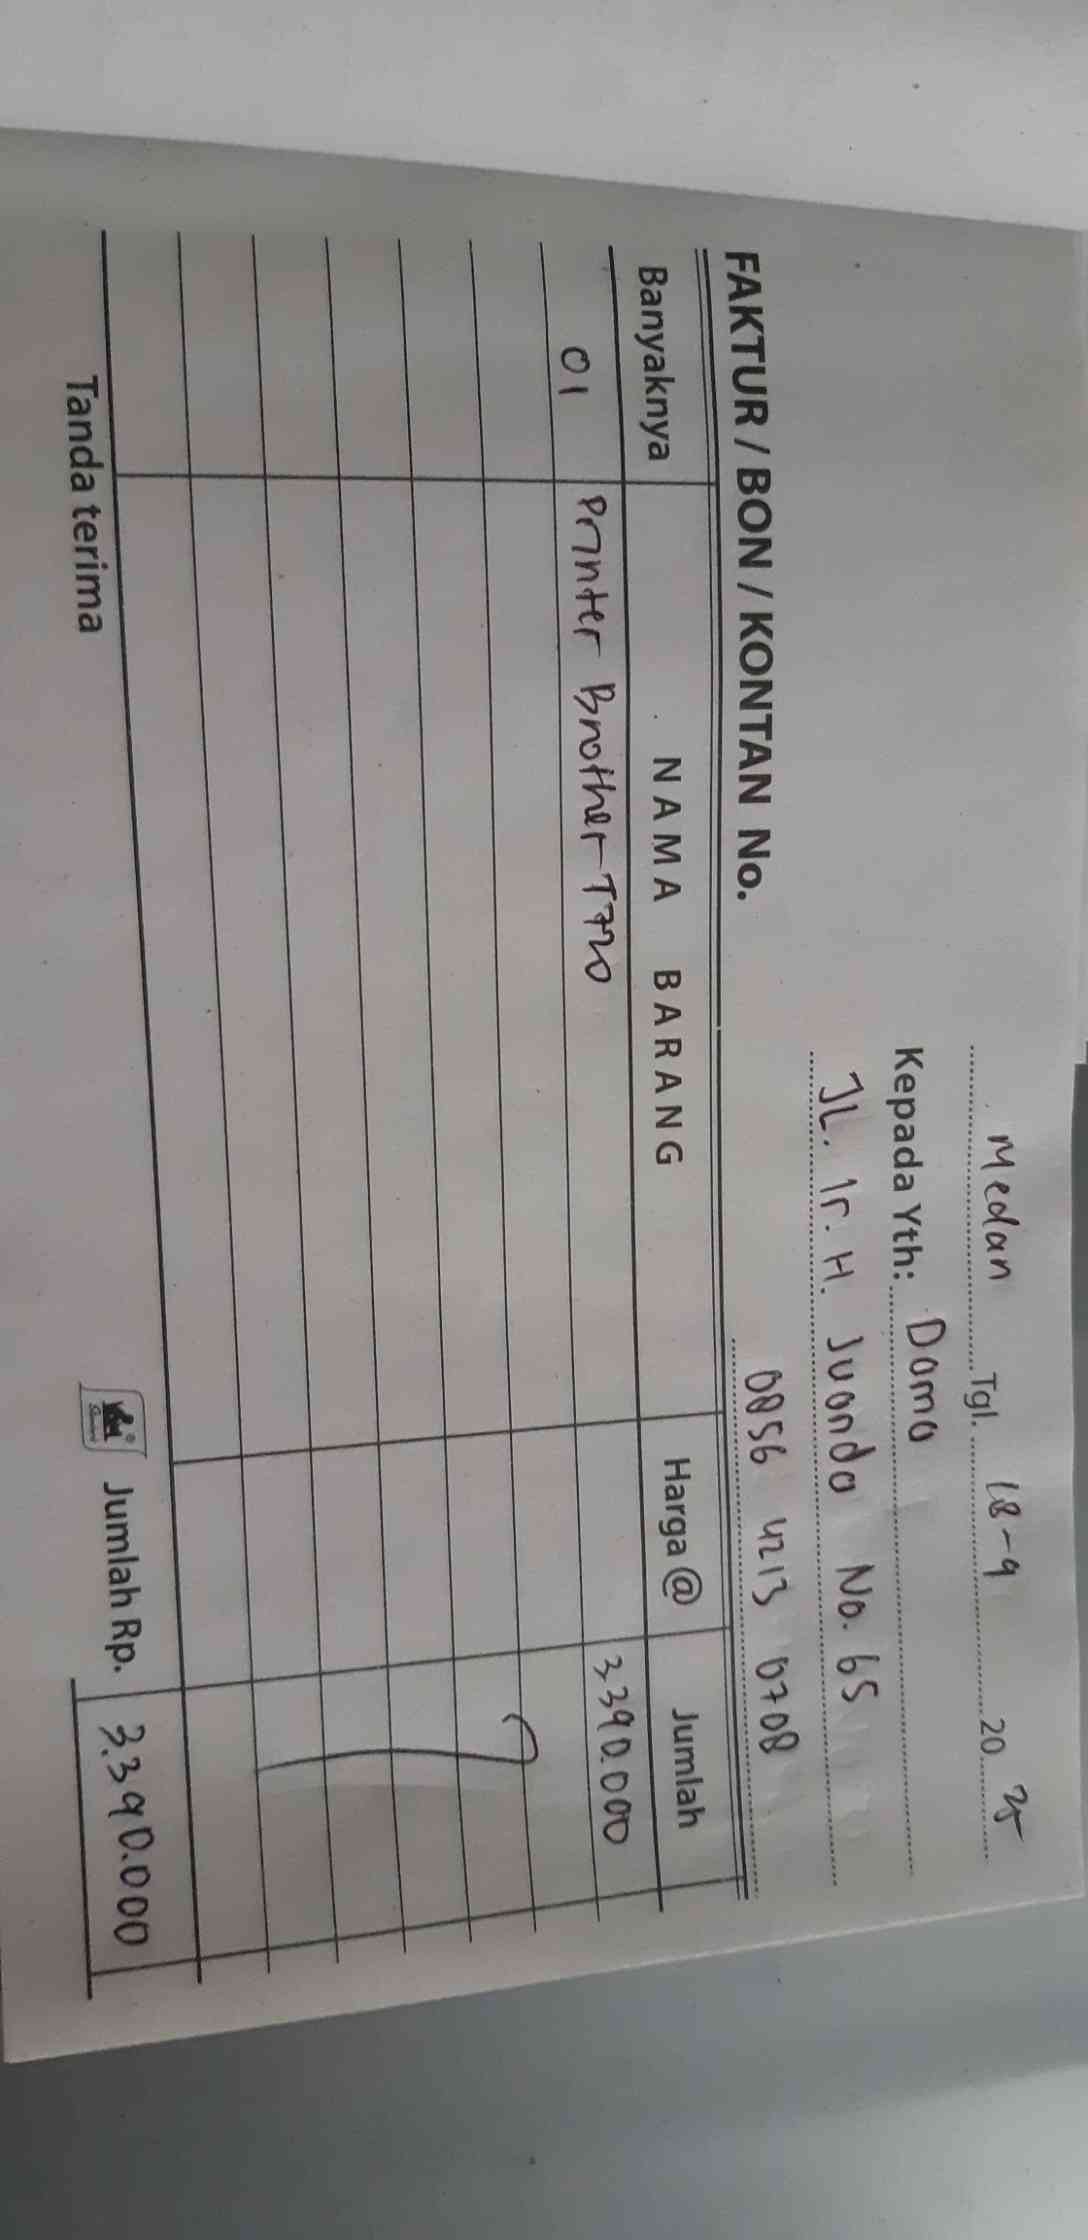 Medan Tgl. 18-9 20 25
Kepada Yth: Doma
JL. Ir. H. Juanda No. 65
0856 4213 0708
FAKTUR / BON / KONTAN No.
Banyaknya NAMA BARANG Harga @ Jumlah
01 Printer Brother T720 3.390.000
Tanda terima Jumlah Rp. 3.390.000